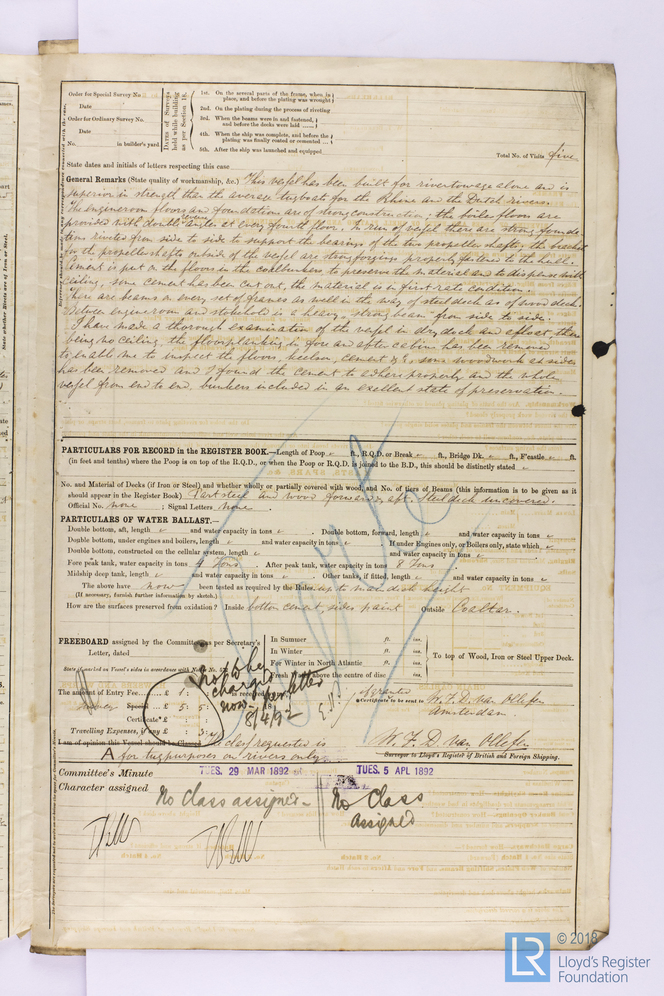 Order for Special Survey No
Date
Order for Ordinary Survey No.
Date
No. in builder's yard.
Dates of Surveys held while building as per Section 18.
1st. On the several parts of the frame, when in place, and before the plating was wrought
2nd. On the plating during the process of riveting
3rd. When the beams were in and fastened, and before the decks were laid
4th. When the ship was complete, and before the plating was finally coated or cemented
5th. After the ship was launched and equipped
Total No. of Visits five
State dates and initials of letters respecting this case
General Remarks (State quality of workmanship, &c.) This vessel has been built for rivertowage alone and is
superior in strength than the average tugboat for the Rhine and the Dutch rivers.
The engineroom floors and foundations are of strong construction; the boiler floors are
provided with double reverse angles at every fourth floor. In rear of vessel there are strong founda-
tions riveted from side to side to support the bearings of the two propeller shafts; the brackets
for the propellershafts outside of the vessel are strong forgings properly fastened to the hull.
Cement is put on the floors in the coalbunkers to preserve the material and to dispense with
ceiling, some cement has been cut out, the material is in first rate condition.
There are beams on every set of frames as well in the way of steel deck as of wood deck.
Between engineroom and stokehold is a heavy strong beam from side to side.
I have made a thorough examination of the vessel in dry dock and afloat, there
being no ceiling, the floorplanking in fore and after cabin has been removed
to enable me to inspect the floors, keelson, cement &c, some woodwork at sides
has been removed and I found the cement to adhere properly and the whole
vessel from end to end, bunkers included in an excellent state of preservation.
PARTICULARS FOR RECORD in the REGISTER BOOK.—Length of Poop ft., R.Q.D. or Break ft., Bridge Dk. ft., F'castle ft.
(in feet and tenths) where the Poop is on top of the R.Q.D., or when the Poop or R.Q.D. is joined to the B.D., this should be distinctly stated
No. and Material of Decks (if Iron or Steel) and whether wholly or partially covered with wood, and No. of tiers of Beams (this information is to be given as it
should appear in the Register Book) Part steel and wood forward & aft. Steel deck uncovered.
Official No. none ; Signal Letters none
PARTICULARS OF WATER BALLAST.—
Double bottom, aft, length and water capacity in tons . Double bottom, forward, length and water capacity in tons
Double bottom, under engines and boilers, length and water capacity in tons If under Engines only, or Boilers only, state which
Double bottom, constructed on the cellular system, length and water capacity in tons
Fore peak tank, water capacity in tons 4 Tons. After peak tank, water capacity in tons 8 Tons.
Midship deep tank, length and water capacity in tons Other tanks, if fitted, length and water capacity in tons
The above have now been tested as required by the Rules up to main deck height
(If necessary, furnish further information by sketch.)
How are the surfaces preserved from oxidation? Inside bottom cement, sides paint Outside Coaltar.
FREEBOARD assigned by the Committee as per Secretary's
Letter, dated
In Summer ft. ins.
In Winter ft. ins.
For Winter in North Atlantic ft. ins.
Fresh above the centre of disc ins.
To top of Wood, Iron or Steel Upper Deck.
State if marked on Vessel's sides in accordance with
The amount of Entry Fee £ 1 : : is received
Special £ 5 : 5 :
Certificate £ : :
Travelling Expenses, if any £
not to be
charged
now per letter
8/4/92
if granted
Certificate to be sent to W. F. D. van Ollefen
Amsterdam.
I am of opinion this Vessel should be Classed The class requested is
A for tug purposes on rivers only.
W. F. D. van Ollefen
Surveyor to Lloyd's Register of British and Foreign Shipping.
Committee's Minute TUES. 29 MAR 1892 TUES. 5 APL 1892
Character assigned No Class assigned— No Class
Assigned
LR
© 2018
Lloyd's Register
Foundation